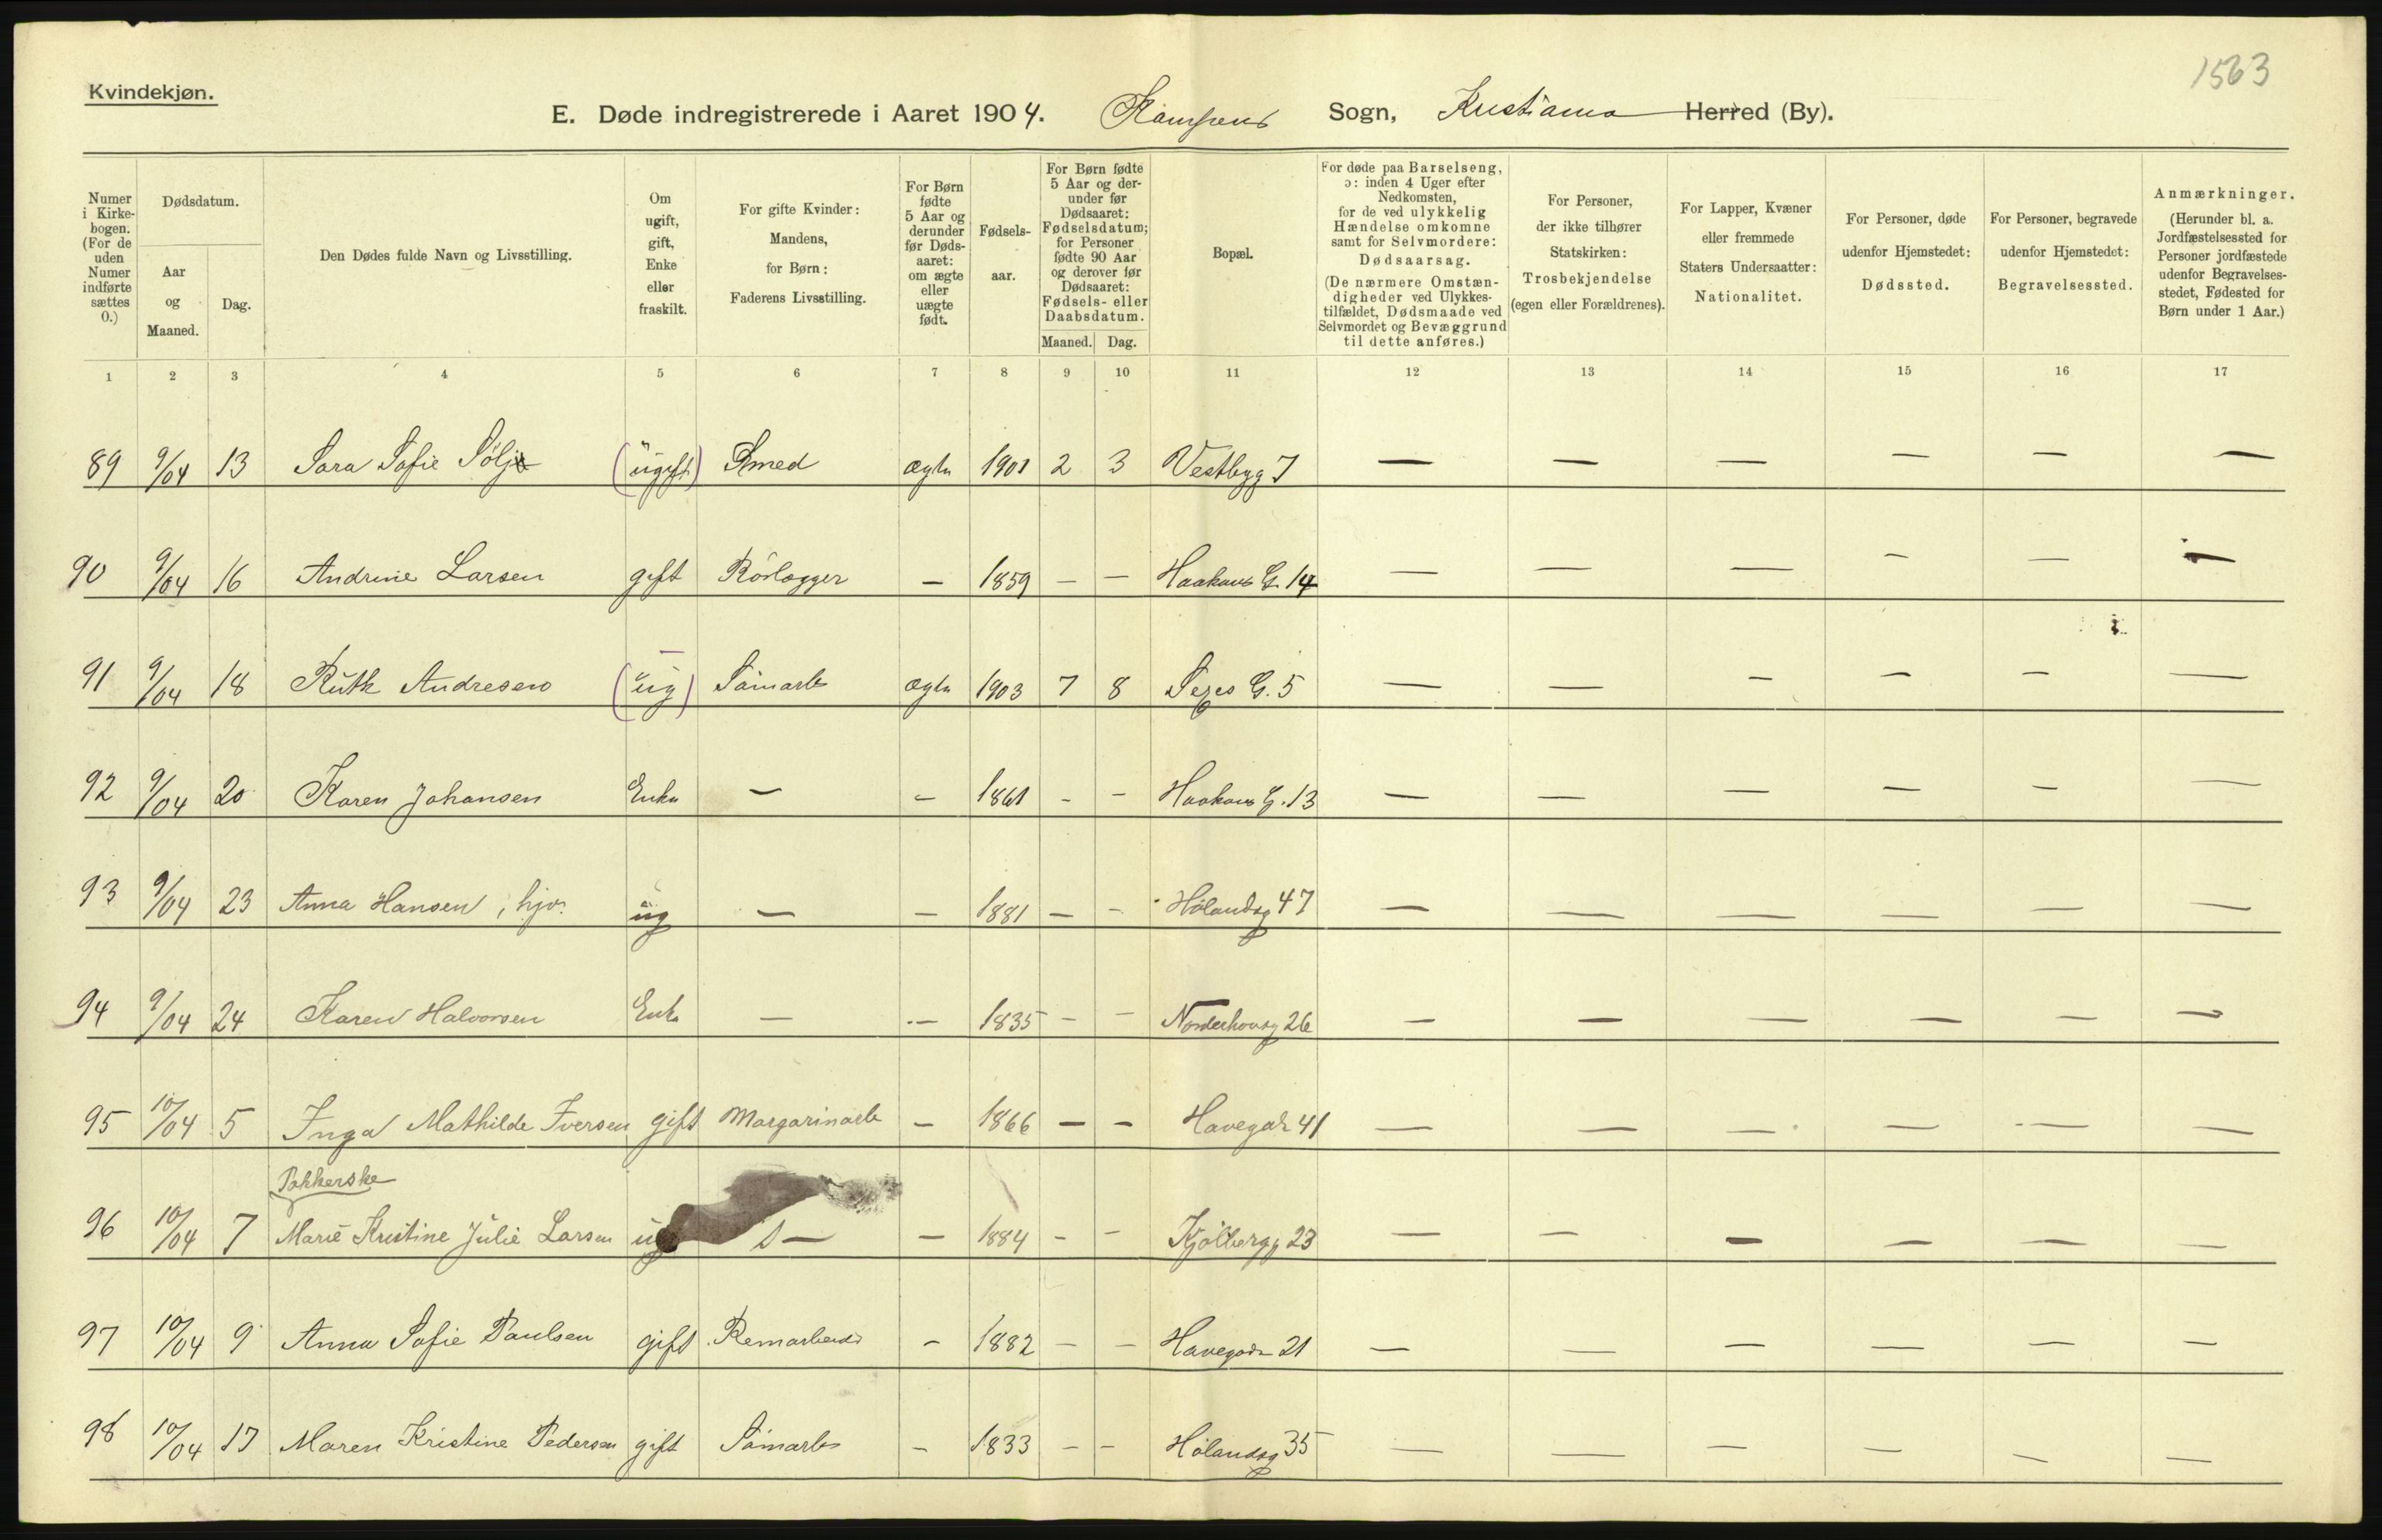 1563
Kvindekjøn.
E. Døde indregistrerede i Aaret 1904. Kampens Sogn, Kristiania Herred (By).
Numer i Kirkebogen. (For de uden Numer indførte sættes 0.)
Dødsdatum.
Aar og Maaned.
Dag.
Den Dødes fulde Navn og Livsstilling.
Om ugift, gift, Enke eller fraskilt.
For gifte Kvinder: Mandens, for Børn: Faderens Livsstilling.
For Børn fødte 5 Aar og derunder før Dødsaaret: om ægte eller uægte født.
Fødselsaar.
For Børn fødte 5 Aar og derunder før Dødsaaret: Fødselsdatum; for Personer fødte 90 Aar og derover før Dødsaaret: Fødsels- eller Daabsdatum.
Maaned. Dag.
Bopæl.
For døde paa Barselseng, ɔ: inden 4 Uger efter Nedkomsten, for de ved ulykkelig Hændelse omkomne samt for Selvmordere: Dødsaarsag. (De nærmere Omstændigheder ved Ulykkestilfældet, Dødsmaade ved Selvmordet og Bevæggrund til dette anføres.)
For Personer, der ikke tilhører Statskirken: Trosbekjendelse (egen eller Forældrenes).
For Lapper, Kvæner eller fremmede Staters Undersaatter: Nationalitet.
For Personer, døde udenfor Hjemstedet: Dødssted.
For Personer, begravede udenfor Hjemstedet: Begravelsessted.
Anmærkninger. (Herunder bl. a. Jordfæstelsessted for Personer jordfæstede udenfor Begravelsesstedet, Fødested for Børn under 1 Aar.)
1 2 3 4 5 6 7 8 9 10 11 12 13 14 15 16 17
89 9/04 13 Sara Sofie (ugift) Smed ægte 1901 2 3 Vestbyg 7 — — — — — —
90 9/04 16 Andrine Larsen gift Rörlægger — 1859 — — Haakons G. 14 — — — — — —
91 9/04 18 Ruth Andresen (ug) ægte 1903 7 8 G. 5 — — — — — —
92 9/04 20 Karen Johansen Enke — — 1861 - - Haakons G. 13 — — — — — —
93 9/04 23 Anna Hansen, ug — — 1881 — - Hølandsg 47 — — — — — —
94 9/04 24 Karen Halvorsen Enke — — 1835 - - Norderhovsg 26 — — — — — —
95 10/04 5 Inga Mathilde Iversen gift Margarinarb — 1866 — — Havegad 41 — — — — — —
Pakkerske
96 10/04 7 Marie Kristine Julie Larsen ug — — 1884 - - Kjølbergg 23 — — — — — —
97 10/04 9 Anna Sofie Paulsen gift - 1882 — — Havegade 21 — — — — — —
98 10/04 17 Maren Kristine Pedersen gift - 1833 - - Hølandsg 35 — — — — — —